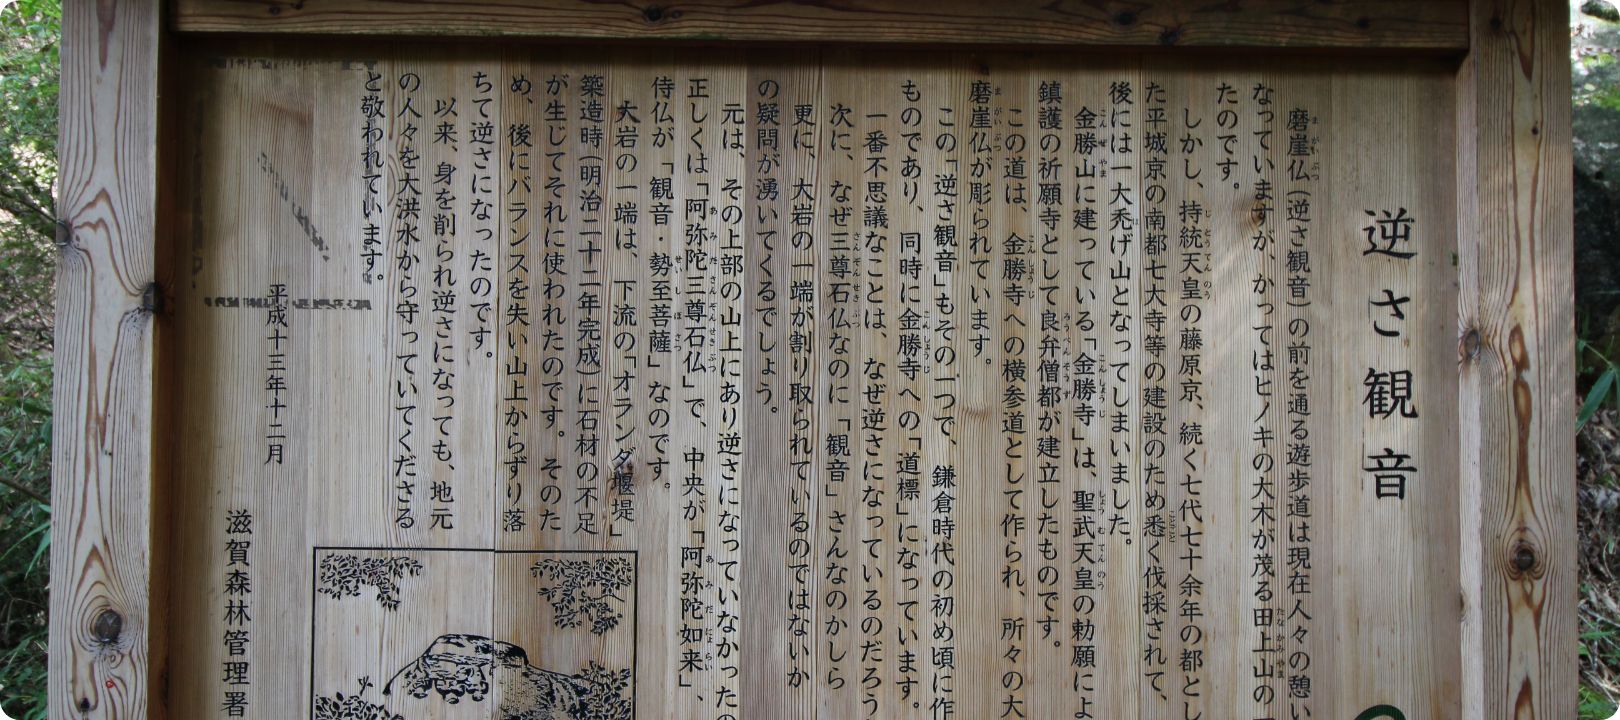 逆さ観音
磨崖仏(逆さ観音)の前を通る遊歩道は現在人々の憩い
なっていますが、かってはヒノキの大木が茂る田上山の一
たのです。
しかし、持統天皇の藤原京、続く七代七十余年の都とし
た平城京の南都七大寺等の建設のため悉く伐採されて、
後には一大禿げ山となってしまいました。
金勝山に建っている「金勝寺」は、聖武天皇の勅願によ
鎮護の祈願寺として良弁僧都が建立したものです。
この道は、金勝寺への横参道として作られ、所々の大
磨崖仏が彫られています。
この「逆さ観音」もその一つで、鎌倉時代の初め頃に作
ものであり、同時に金勝寺への「道標」になっています。
一番不思議なことは、なぜ逆さになっているのだろう
次に、なぜ三尊石仏なのに「観音」さんなのかしら
更に、大岩の一端が割り取られているのではないか
の疑問が湧いてくるでしょう。
元は、その上部の山上にあり逆さになっていなかったの
正しくは「阿弥陀三尊石仏」で、中央が「阿弥陀如来」、
侍仏が「観音・勢至菩薩」なのです。
大岩の一端は、下流の「オランダ堰堤」
築造時(明治二十二年完成)に石材の不足
が生じてそれに使われたのです。そのた
め、後にバランスを失い山上からずり落
ちて逆さになったのです。
以来、身を削られ逆さになっても、地元
の人々を大洪水から守っていてくださる
と敬われています。
平成十三年十二月
滋賀森林管理署